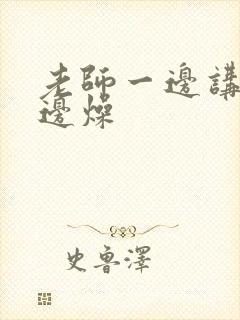 老師一邊講
邊燥
史魯澤